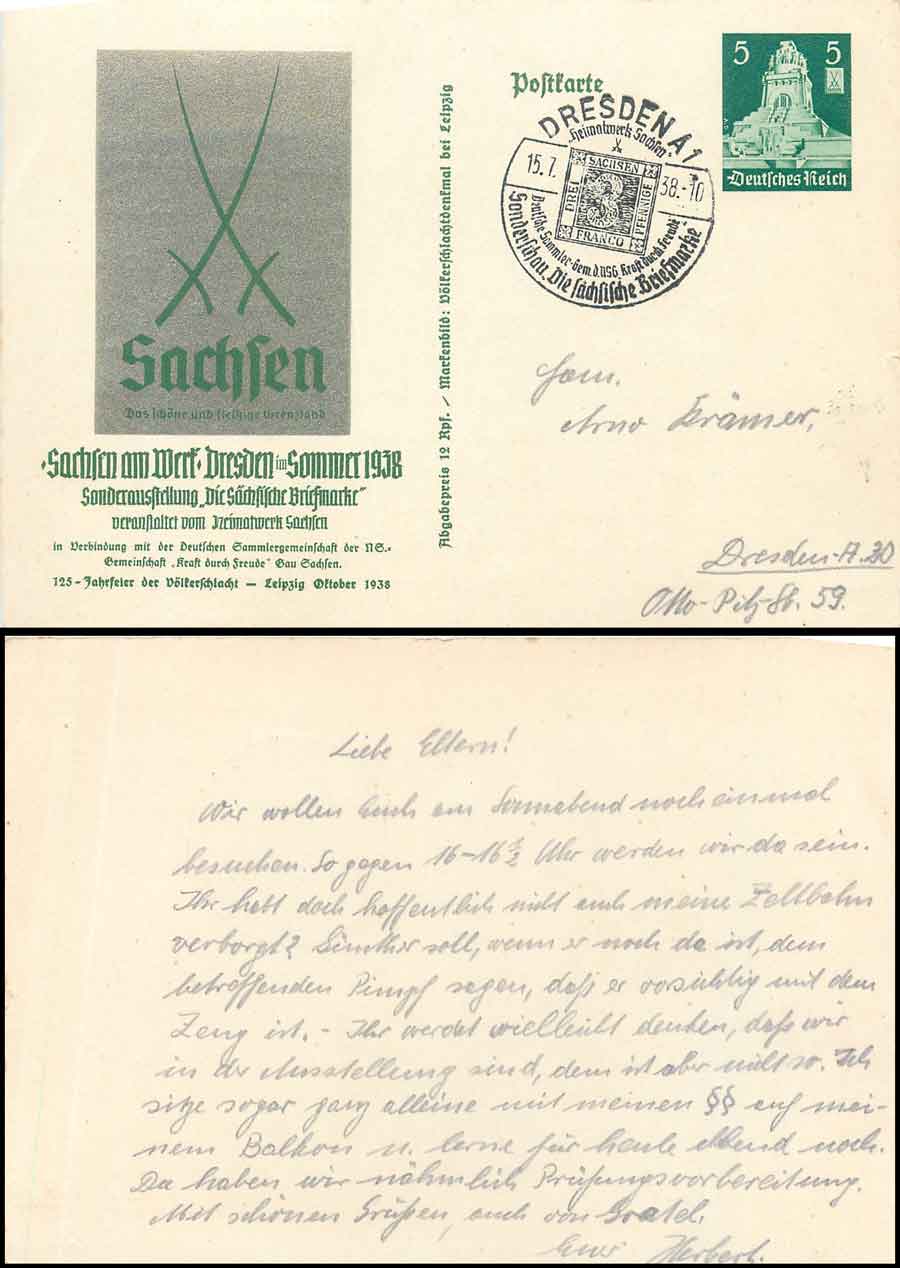 Sachsen
Das schöne und fleißige Grenzland
·Sachsen am Werk· Dresden im Sommer 1938
Sonderausstellung „Die Sächsische Briefmarke“
veranstaltet vom Heimatwerk Sachsen
in Verbindung mit der Deutschen Sammlergemeinschaft der NS.-
Gemeinschaft „Kraft durch Freude“ Gau Sachsen.
125-Jahrfeier der Völkerschlacht — Leipzig Oktober 1938
Abgabepreis 12 Rpf. / Markenbild: Völkerschlachtdenkmal bei Leipzig
Postkarte
DRESDEN A1
„Heimatwerk Sachsen“
15.7. 38.-10
SACHSEN
DREI
3
PFENNIGE
FRANCO
Deutsche Sammler-Gem. d. NSG Kraft durch Freude
Sonderschau: Die sächsische Briefmarke
5 5
Deutsches Reich
Fam.
Arno Krämer,
Dresden-A. 30
Otto-Pilz-Str. 59.
Liebe Eltern!
Wir wollen Euch am Sonnabend noch einmal
besuchen. So gegen 16–16½ Uhr werden wir da sein.
Ihr habt doch hoffentlich nicht auch meine Zeltbahn
verborgt? Günther soll, wenn er noch da ist, dem
betreffenden Pimpf sagen, daß er vorsichtig mit dem
Zeug ist. – Ihr werdet vielleicht denken, daß wir
in der Ausstellung sind, dem ist aber nicht so. Ich
sitze sogar ganz alleine mit meinen §§ auf mei-
nem Balkon u. lerne für heute Abend noch.
Da haben wir nähmlich Prüfungsvorbereitung.
Mit schönen Grüßen, auch von
Euer Herbert.